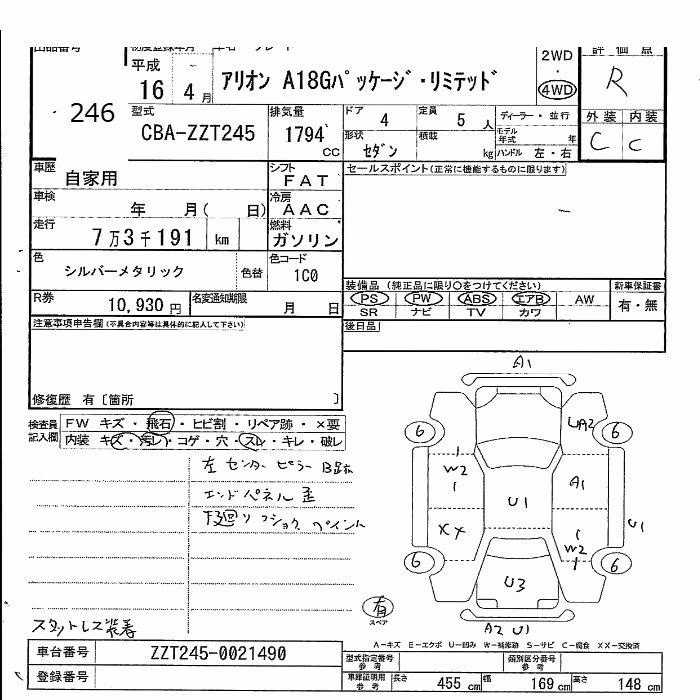 平成
16 4月 アリオン A18Gパッケージ・リミテッド
2WD
・
4WD
評価点
R
246
型式 CBA-ZZT245
排気量 1794 CC
ドア 4 定員 5人
形状 セダン 積載 kg
ディーラー・並行
モデル年式 年
ハンドル 左・右
外装 内装
C C
車歴 自家用
シフト FAT
車検 年 月( 日)
冷房 AAC
走行 7万3千191 km
燃料 ガソリン
色 シルバーメタリック 色替
色コード 1C0
セールスポイント(正常に機能するものに限ります)
R券 10,930円
名変通知期限 月 日
装備品 (純正品に限り○をつけてください)
新車保証書
PS PW ABS エアB AW
SR ナビ TV カワ
有・無
後日品
注意事項申告欄(不具合内容等は具体的に記入して下さい)
修復歴 有〔箇所 〕
検査員記入欄
FW キズ・飛石・ヒビ割・リペア跡・×要
内装 キズ・汚レ・コゲ・穴・スレ・キレ・破レ
左センターピラー
エンドパネル歪
下廻り ペイント
スタットレス装着
A1
6 UA2 6
W2 A1
U1
XX W2 U1
6 6
U3
A2 U1
有
スペア
A-キズ E-エクボ U-凹み W-補修跡 S-サビ C-腐食 XX-交換済
車台番号 ZZT245-0021490
登録番号
型式指定番号 参考
類別区分番号 参考
車庫証明用 参考
長さ 455cm 幅 169cm 高さ 148cm